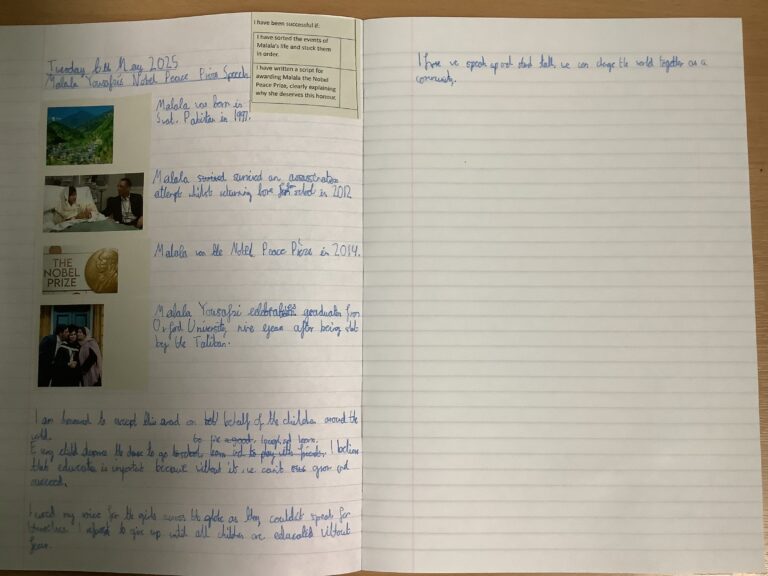 I have been successful if:
I have sorted the events of
Malala's life and stuck them
in order.
I have written a script for
awarding Malala the Nobel
Peace Prize, clearly explaining
why she deserves this honour.
Tuesday 6th May 2025
Malala Yousafzi Nobel Peace Prize Speech
Malala was born in
Swat, Pakistan in 1997.
Malala survived survived an assassination
attempt whilst returning home from school in 2012
THE
NOBEL
PRIZE
Malala won the Nobel Peace Prize in 2014.
Malala Yousafzi celebrates graduates from
Oxford University, nine years after being shot
by the Taliban.
I am honoured to accept this award on behalf of the children around the
world.
be free laugh and learn.
Every child deserves the chance to go to school, learn and to play with friends. I believe
that education is important because without it, we can't grow and
succeed.
I used my voice for the girls across the globe as they couldn't speak for
themselves. I refused to give up until all children are educated without
fear.
I hope we speak up and stand tall, we can change the world together as a
community.